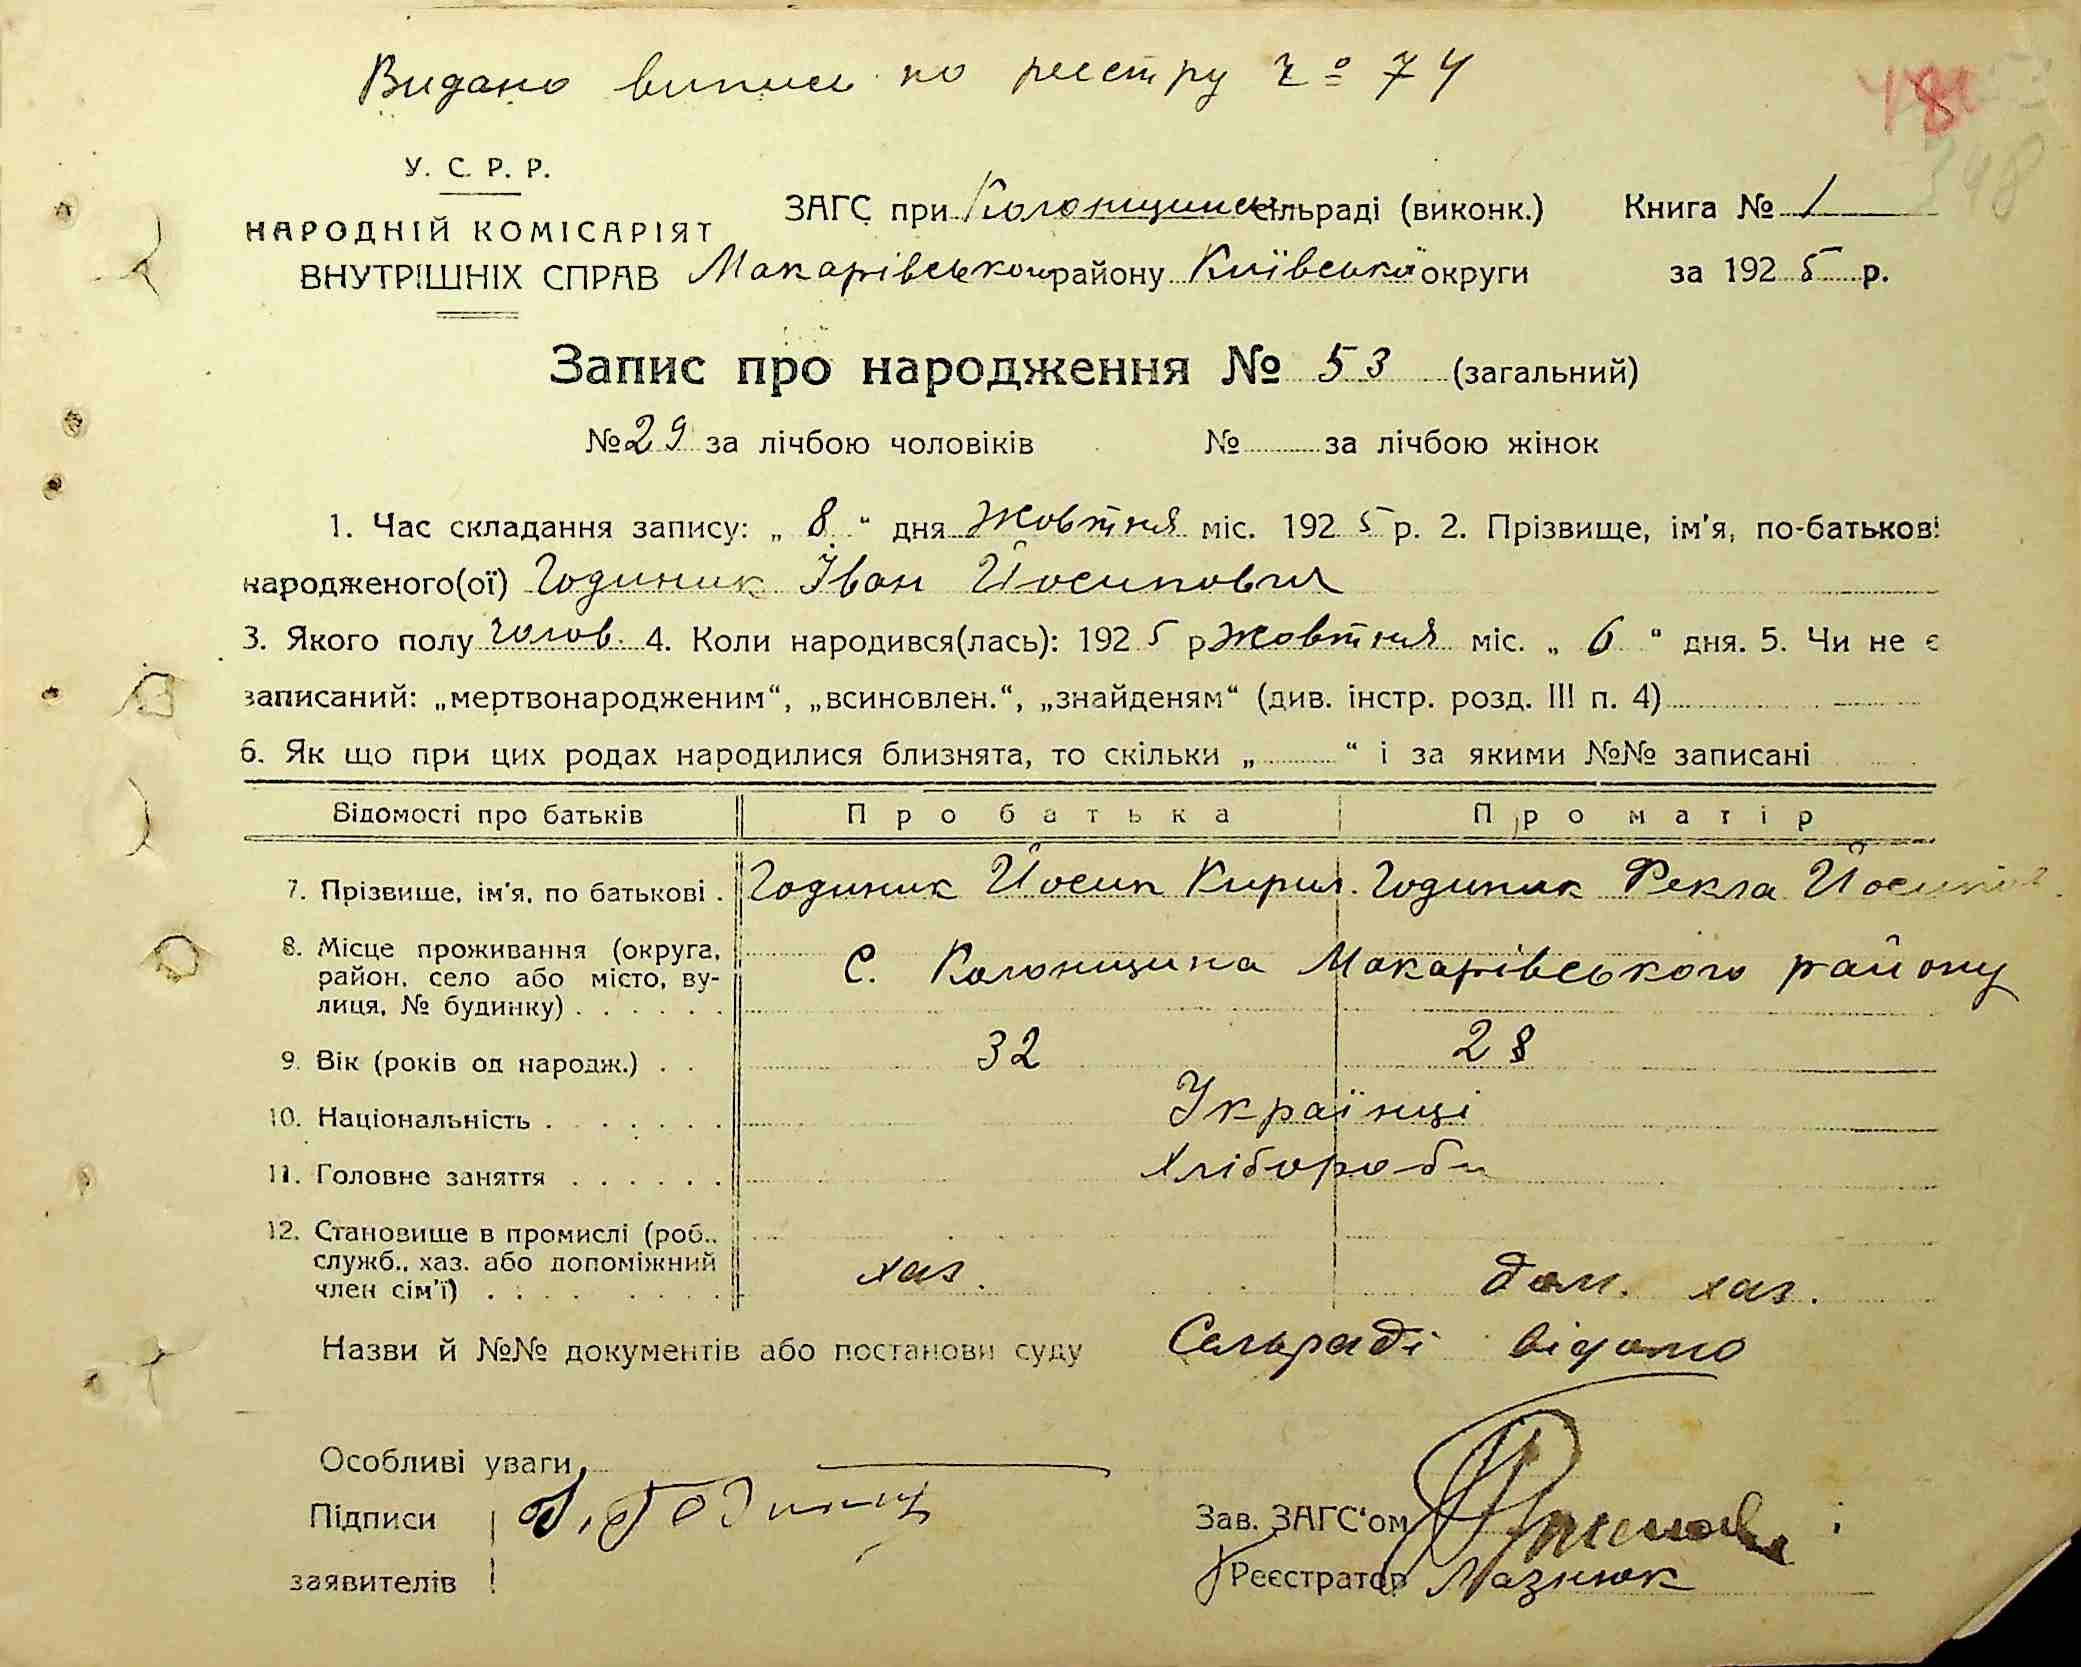 Видано випис по реєстру № 74
48
348
У. С. Р. Р.
НАРОДНІЙ КОМІСАРІЯТ
ВНУТРІШНІХ СПРАВ
ЗАГС при Колонщинськ сільраді (виконк.) Книга № 1
Макарівського району Київської округи за 1925 р.
Запис про народження № 53 (загальний)
№ 29 за лічбою чоловіків № за лічбою жінок
1. Час складання запису: „ 8 “ дня Жовтня міс. 1925 р. 2. Прізвище, ім'я, по-батькові
народженого(ої) Годиник Іван Йосипович
3. Якого полу чолов. 4. Коли народився(лась): 1925 р Жовтня міс. „ 6 “ дня. 5. Чи не є
записаний: „мертвонародженим“, „всиновлен.“, „знайденям“ (див. інстр. розд. III п. 4)
6. Як що при цих родах народилися близнята, то скільки „ “ і за якими №№ записані
Відомості про батьків Про батька Про матір
7. Прізвище, ім'я, по батькові . Годиник Йосип Кирил. Годиник Фекла Йосипов.
8. Місце проживання (округа,
район, село або місто, ву-
лиця, № будинку) . . . . . .
С. Колонщина Макарівського району
9. Вік (років од народж.) . . 32 28
10. Національність . . . . . . . Українці
11. Головне заняття . . . . . . Хлібороби
12. Становище в промислі (роб.,
служб., хаз. або допоміжний
член сім'ї) . . . . . . . . хаз. дом. хаз.
Назви й №№ документів або постанови суду Сельраді відомо
Особливі уваги
Підписи
Зав. ЗАГС'ом
заявителів
Реєстратор Мазнюк